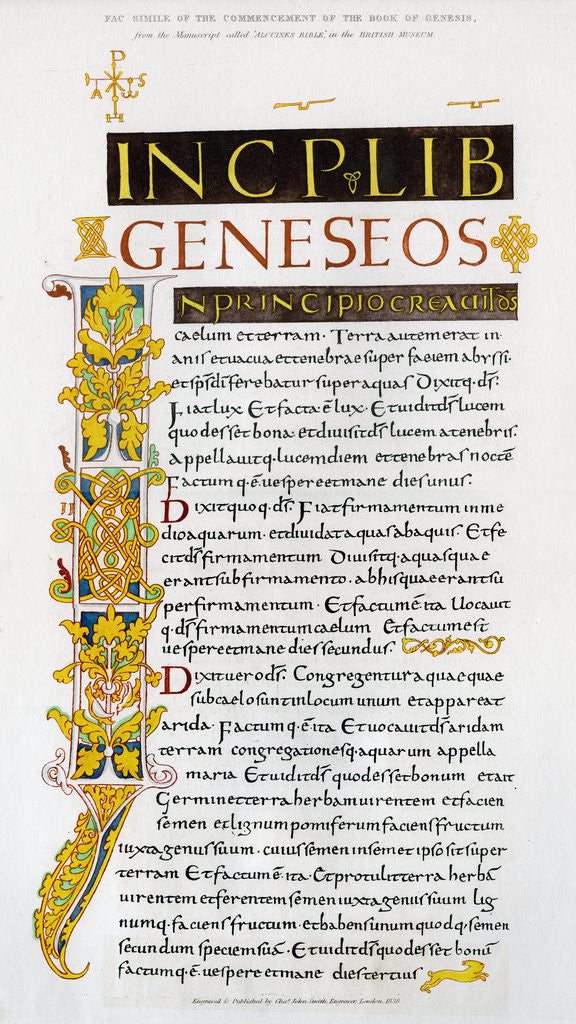 FAC SIMILE OF THE COMMENCEMENT OF THE BOOK OF GENESIS,
from the Manuscript called "ALCUINES BIBLE", in the BRITISH MUSEUM.
P
A S
H
INCP LIB
GENESEOS
IN PRINCIPIO CREAUIT DS
caelum et terram. Terra autem erat in
anis et uacua et tenebrae super faciem abyssi.
et sps di ferebatur super aquas Dixitq. ds.
Fiat lux Et facta ē lux. Et uidit ds lucem
quod esset bona. et diuisit ds lucem a tenebris.
appellauitq. lucem diem et tenebras noctē
Factumq. ē. uespere et mane dies unus.
Dixit quoq. ds. Fiat firmamentum in me
dio aquarum. et diuidat aquas ab aquis. Et fe
cit ds firmamentum Diuisitq. aquas quae
erant sub firmamento. ab his quae erant su
per firmamentum. Et factum ē ita Uocauit
q. ds firmamentum caelum Et factum est
uespere et mane dies secundus.
Dixit uero ds. Congregentur aquae quae
sub caelo sunt in locum unum et appareat
arida. Factumq. ē. ita Et uocauit ds aridam
terram congregationesq. aquarum appella
maria Et uidit ds quod esset bonum et ait
Germinet terra herbam uirentem et facien
semen et lignum pomiferum faciens fructum
iuxta genus suum. cuius semen in semet ipso sit super
terram Et factum ē. ita. Et protulit terra herbā
uirentem et ferentem semen iuxta genus suum lig
numq. faciens fructum. et habens unumquodq. semen
secundum speciem suā. Et uidit ds quod esset bonū
factumq. ē. uespere et mane dies tertius
Engraved & Published by Chas. John Smith, Engraver, London, 1838.